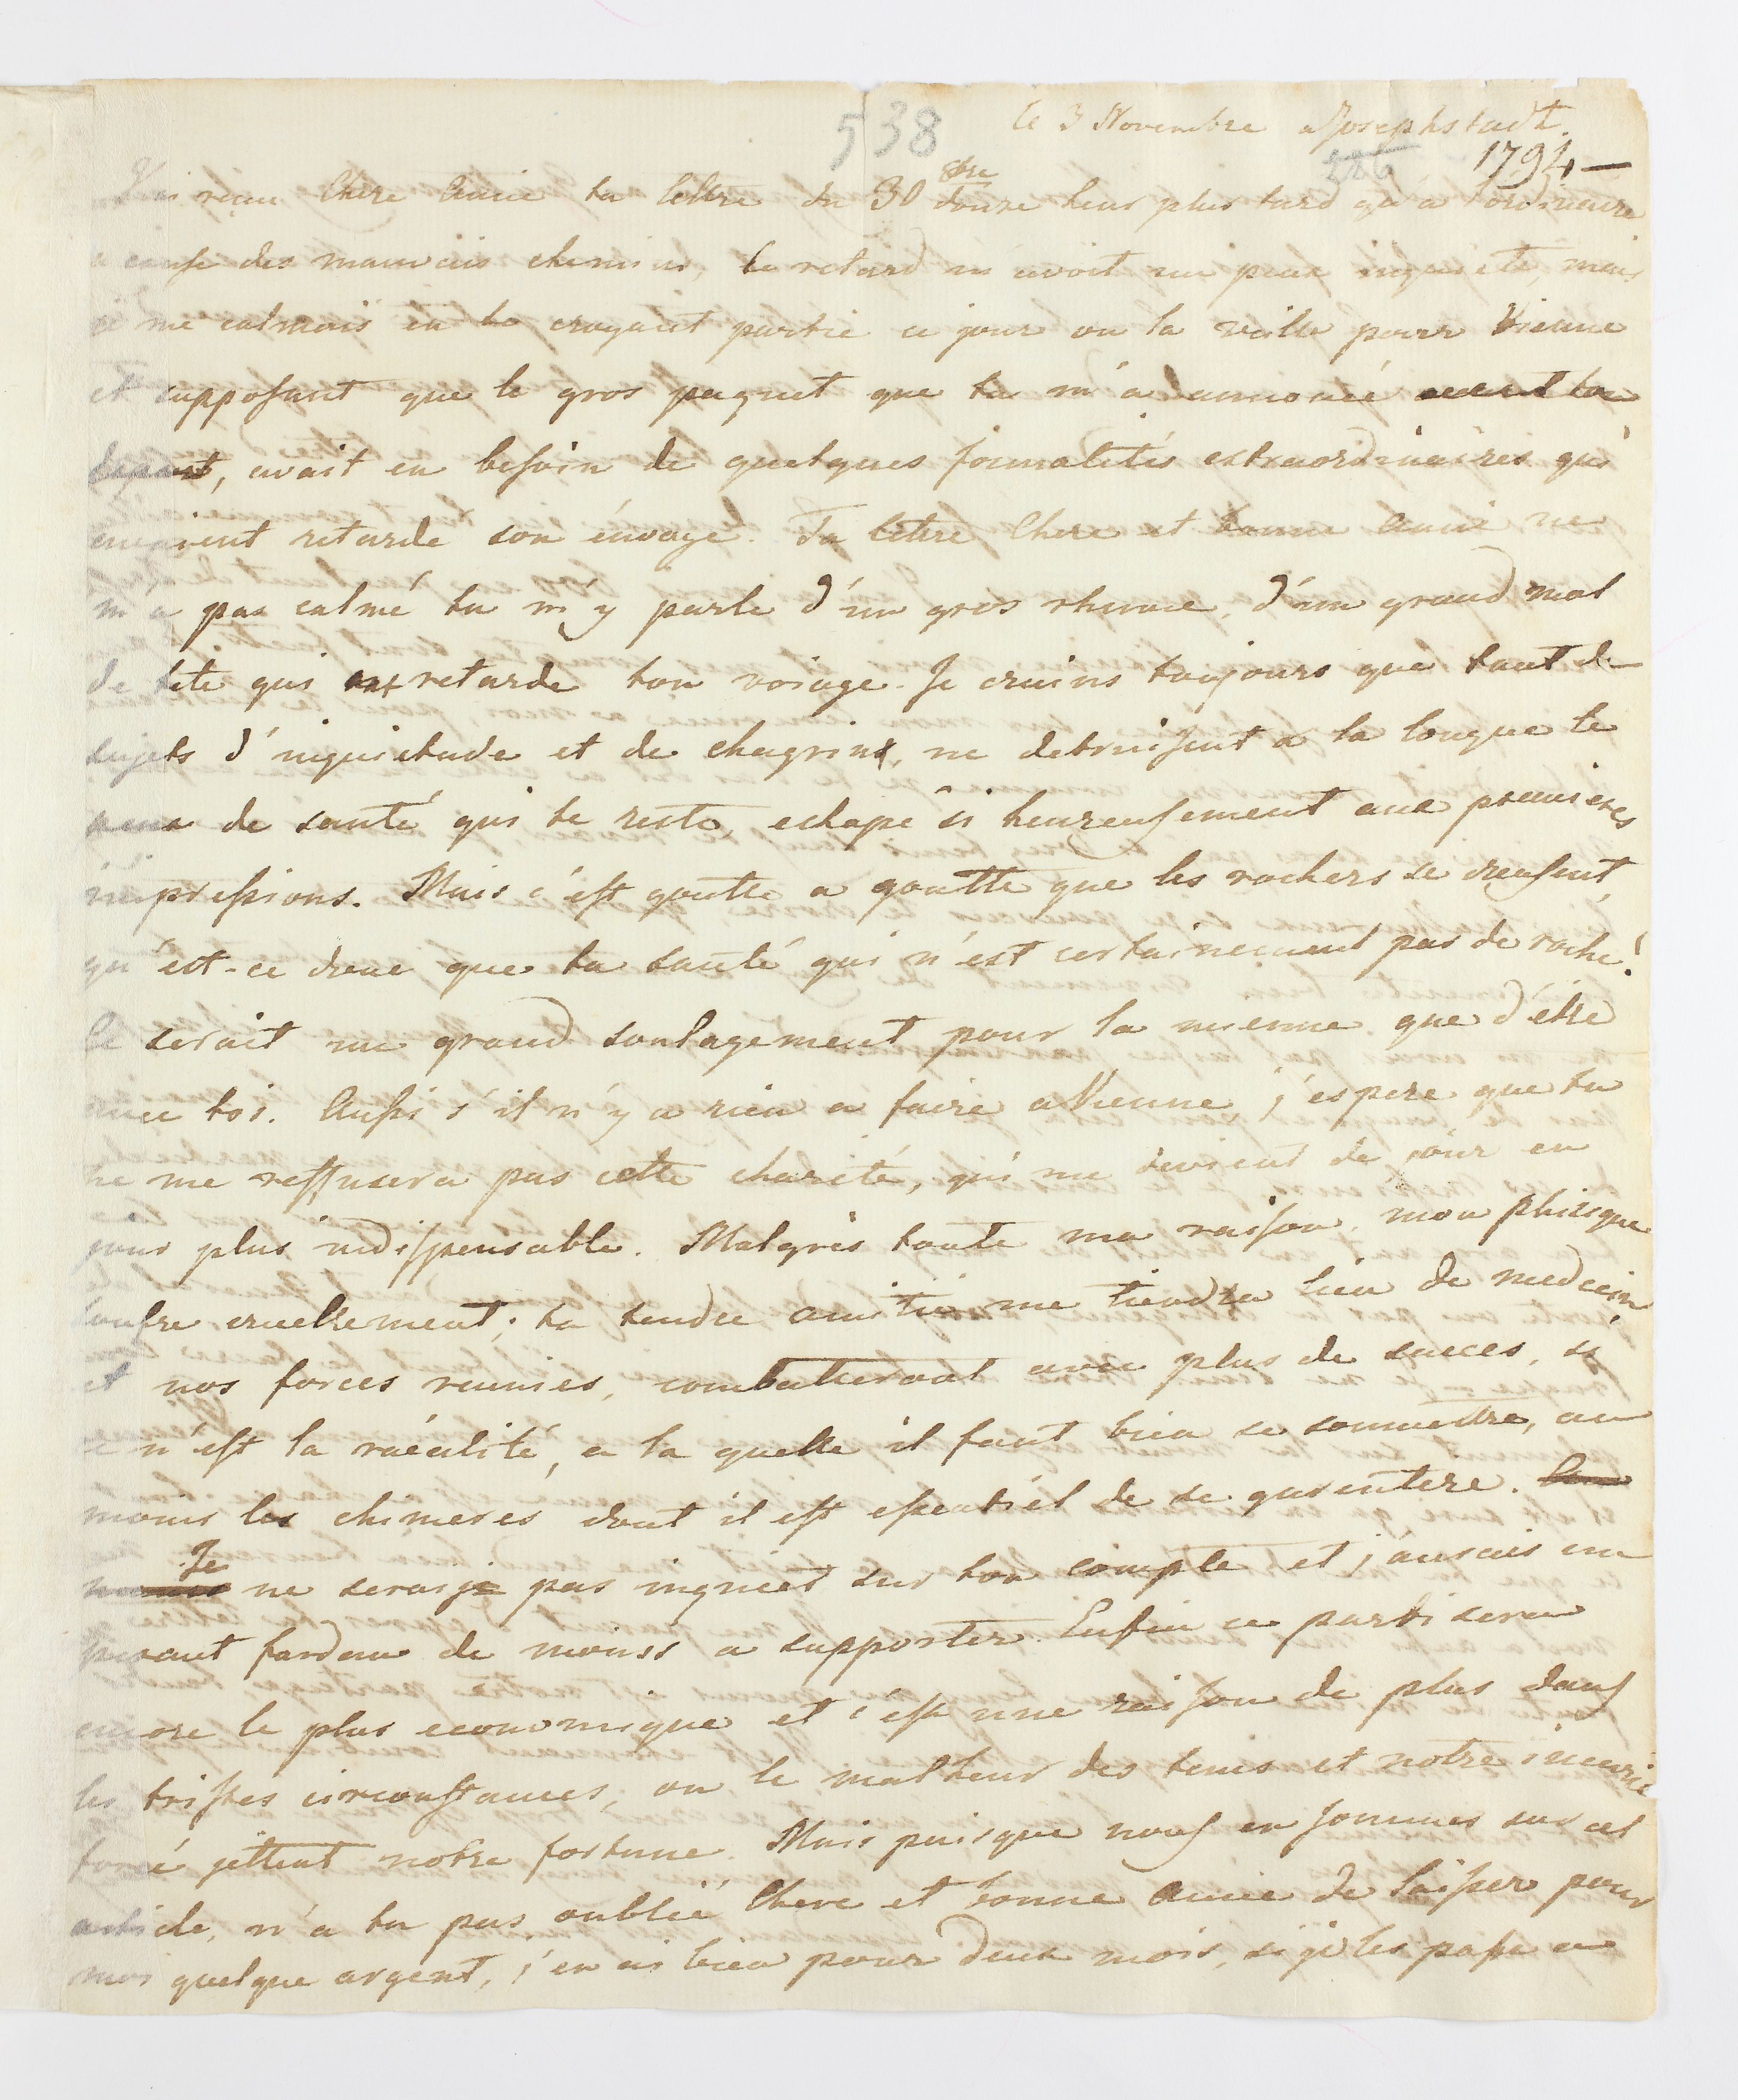 538
le 3 Novembre a Josephstadt.
286 1794 —
J'ai reçu Chere Amie ta lettre du 30 8bre douze heur plus tard qu'a l'ordinaire
a cause des mauvais chemins, ce retard m'avoit un peux inquieté, mais
je me calmais en te croyant partie ce jour ou la veille pour Vienne
et supposant que le gros paquet que tu m'a annoncé avant ton
depart, avait eu besoin de quelques formalités extraordinaires qui
avaient retardé son énvoye. Ta lettre Chere et bonne Amie ne
m'a pas calmé tu m'y parle d'un gros rhume, d'un grand mal
de tete qui retarde ton voiage. Je crains toujours que tant de
sujets d'inquietude et de chagrins, ne detruisent a la longue le
peux de santé qui te reste, echapé si heureusement aux premieres
impressions. Mais c'est goutte a goutte que les rochers se creusent,
qu'est-ce donc que ta santé qui n'est certainement pas de roche!
Ce serait un grand soulagement pour la mienne que d'être
avec toi. Aussi s'il n'y a rien a faire a Vienne, j'espere que tu
ne me reffusera pas cette charité, qui me devient de jour en
jour plus indispensable. Malgrés toute ma raison, mon phisique
soufre cruellement; ta tendre amitié me tiendra lieu de medecin
et nos forces reunies, combatteront avec plus de succes, si
ce n'est la raéalité, a la quelle il faut bien se soumettre, au
moins les chimeres dont il est essentiél de se garentire.
Je ne serais je pas inquiet sur ton compte et j'aurais un
pesant fardeau de moinss a supporter. Enfin ce parti sera
encore le plus economique et c'est une raison de plus dans
les tristes circonstances, ou le malheur des tems et notre incurie
forcé jettent notre fortune. Mais puisque nous en sommes sur cet
article, n'a tu pas oublié Chere et bonne Amie de laisser pour
moi quelque argent, j'en ai bien pour deux mois, si je les passe a